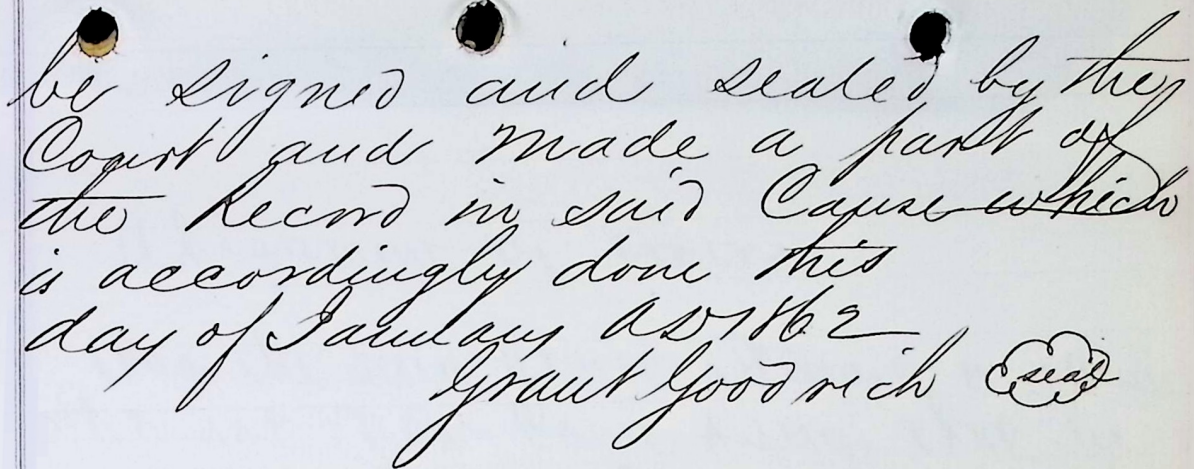 be signed and sealed by the
Court and made a part of
the Record in said Cause which
is accordingly done this
day of January AD 1862
Grant Goodrich seal